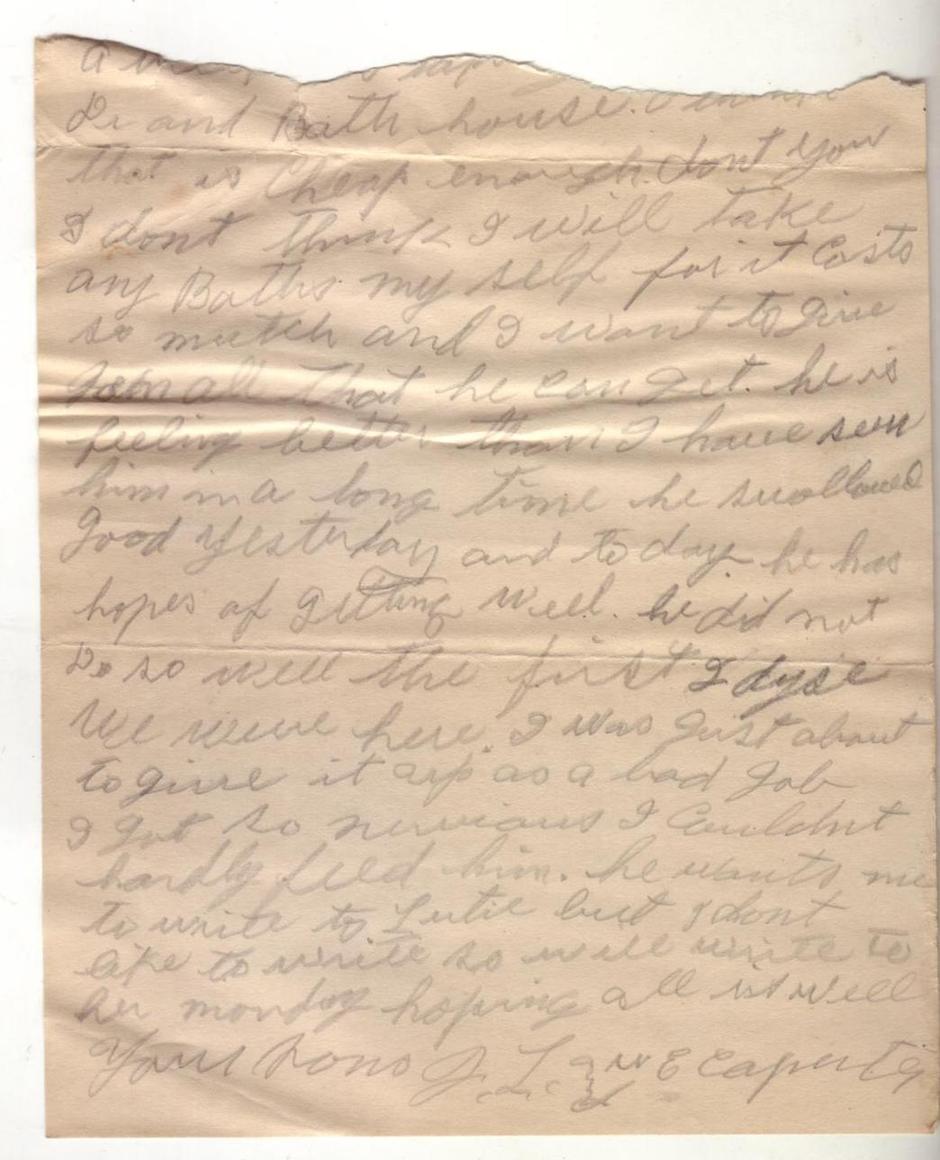 a
Dr and Bath house.
that is Cheap enough. dont you
I dont think I will take
any Baths my self for it Costs
so mutch and I want to give
all that he can get. he is
feeling better than I have seen
him in a long time he swollowed
good yesterday and to day he has
hopes of getting well. he did not
Do so well the first 2 dyse
We weure here. I was Just about
to give it up as a bad Job
I got so nervious I Couldnt
hardly feed him. he wants me
to write to Lutie but I dont
like to write so will write to
her monday hoping all is well
Yours Sons J. L. W E